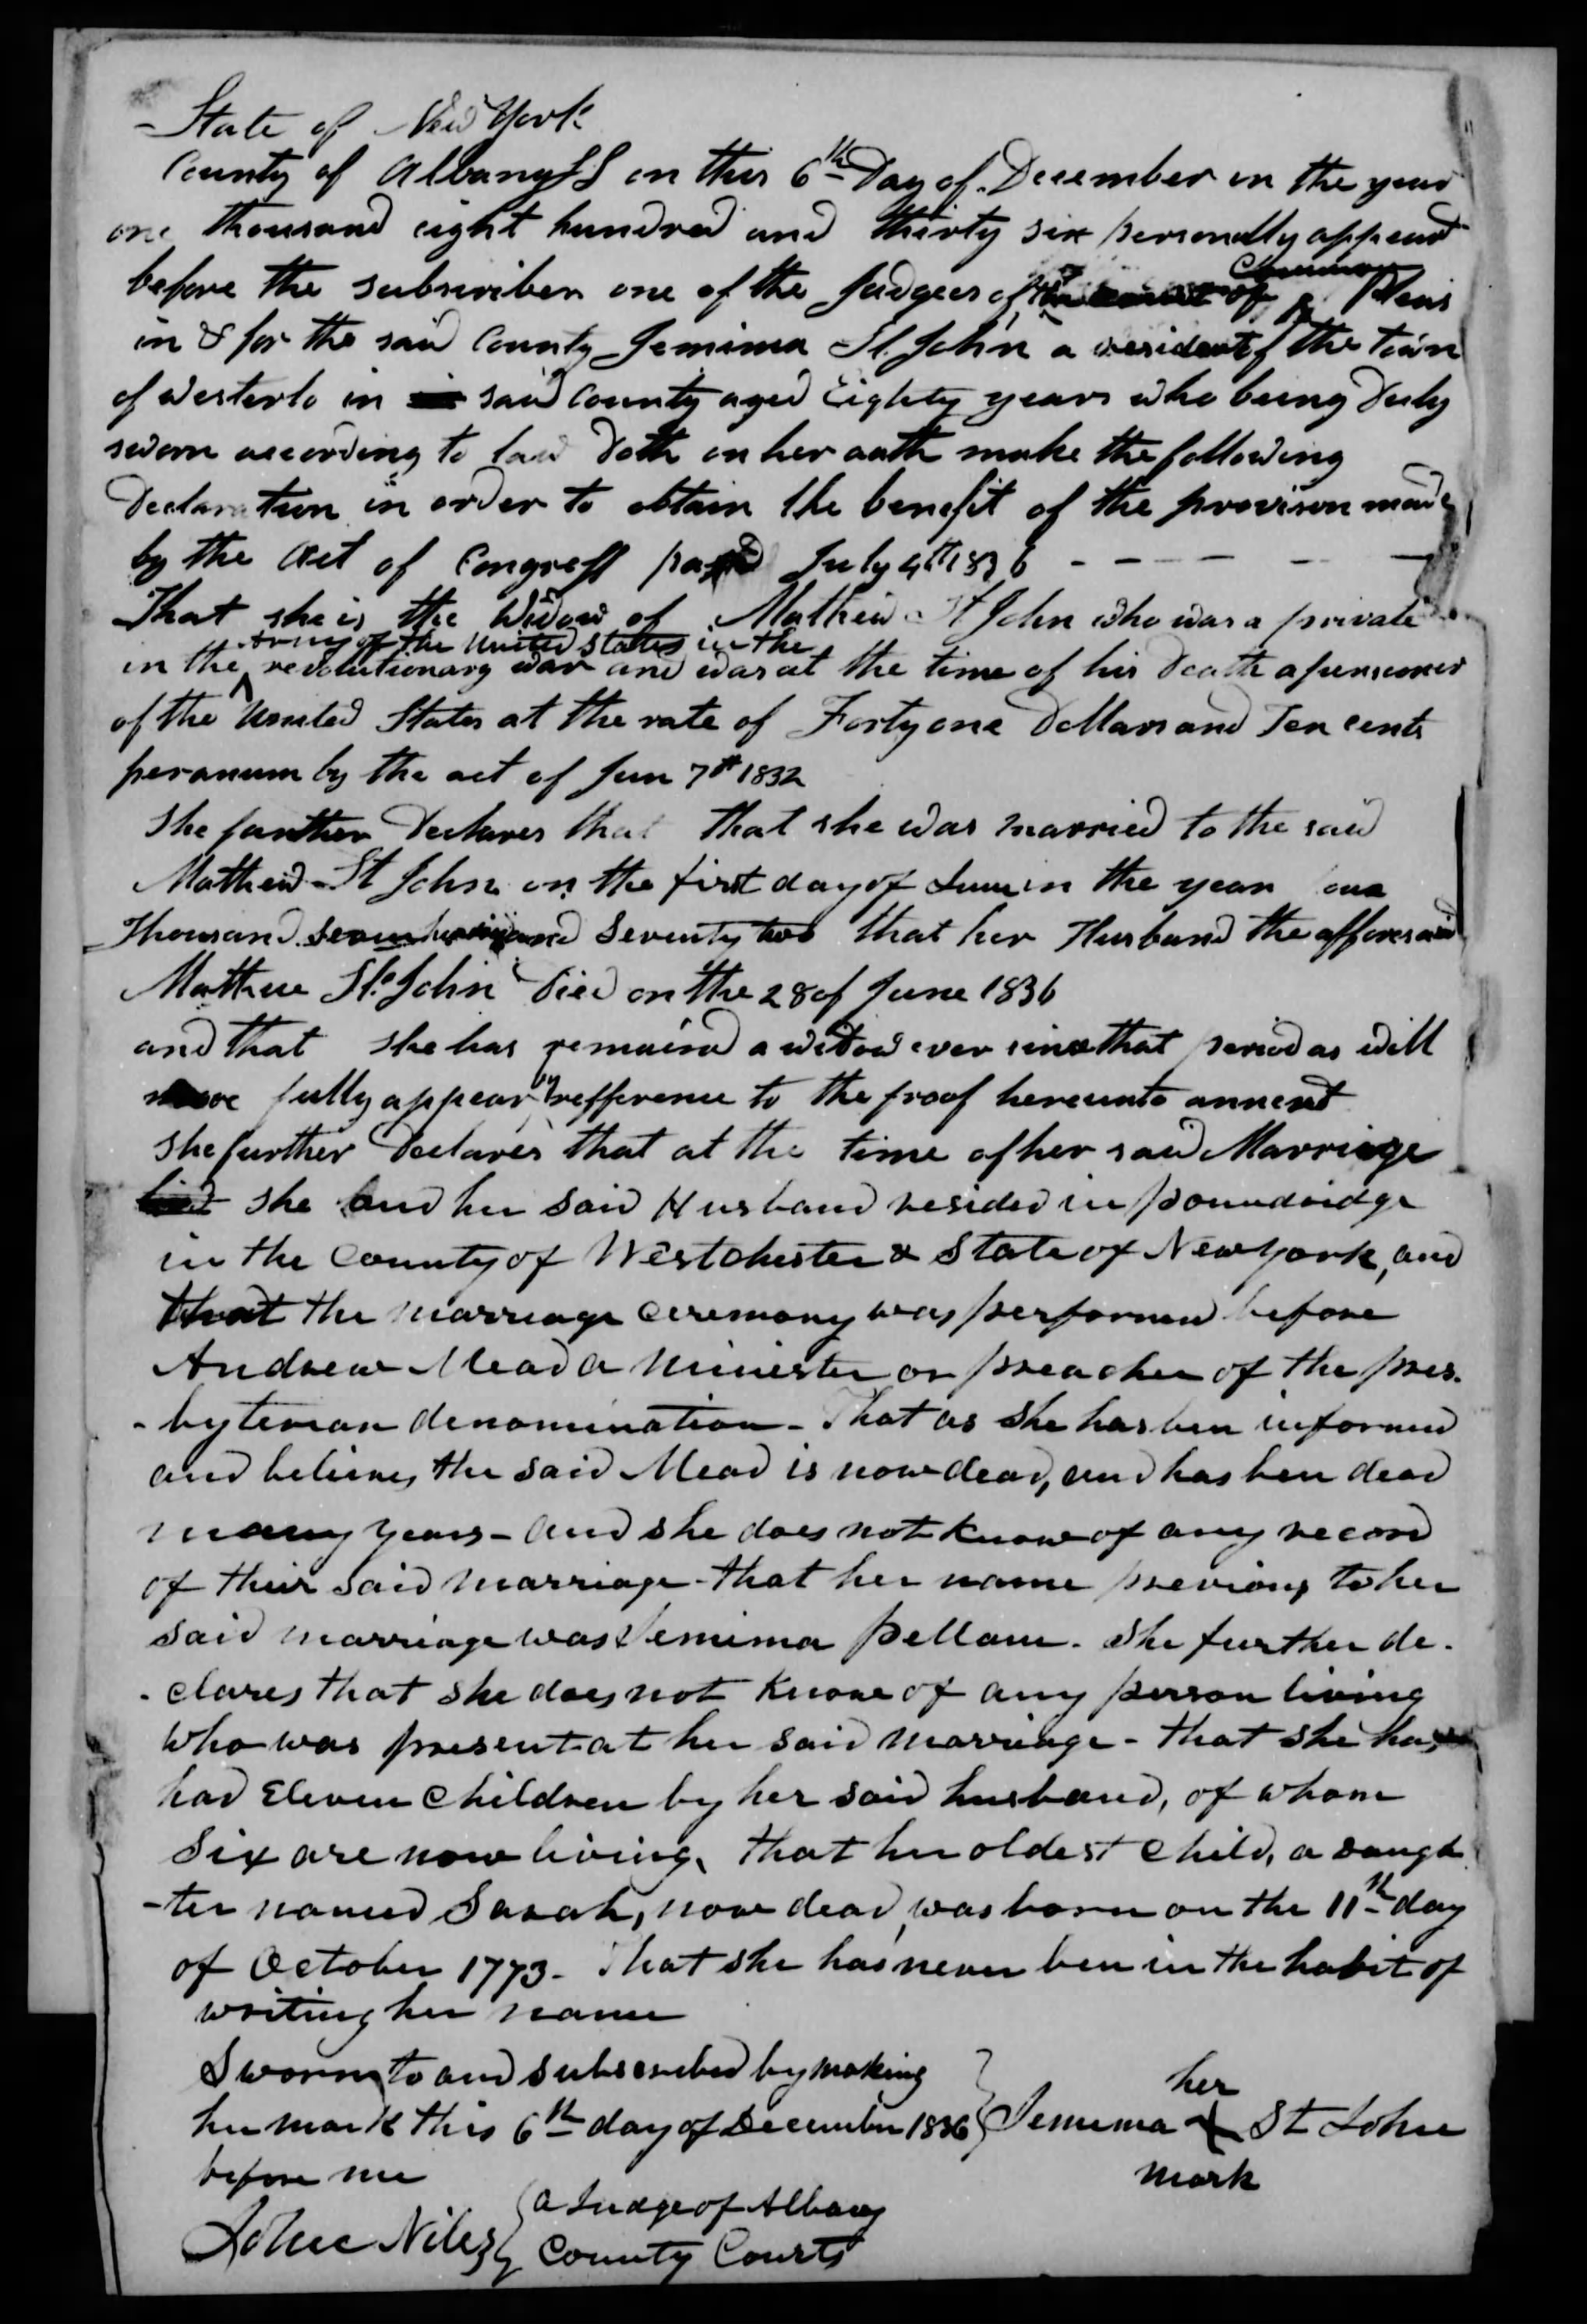 State of New York
County of Albany SS on this 6th Day of December in the year
one thousand eight hundred and thirty six personally appeard
before the subscriber one of the Judgees of Common Pleas
in & for the said County Jemima St. John a resident of the town
of Westerlo in said County aged Eighty years who being Duly
sworn according to law Doth on her oath make the following
Declaration in order to obtain the benefit of the provison made
by the Act of Congress passd July 4th 1836
That she is the Widow of Mathew St John who was a private
army of the United States in the
in the revolutionary war and was at the time of his Death a pensioner
of the United States at the rate of Forty one Dollars and Ten cents
peranum by the act of Jun 7th 1832
She farther Declares that that she was married to the said
Mathew St John on the first day of June in the year one
Thousand seven hundred and Seventy two that her Husband the afforesaid
Mathew St. John Died on the 28 of June 1836
and that she has remaind a widow ever since that period as will
more fully appear by refference to the proof hereunto annext
She further Declares that at the time of her said Marriage
she and her said Husband resided in poundridge
in the County of Westchester & State of New York, and
that the marriage ceremony was performed before
Andrew Mead a Minister or preacher of the pres-
-byterian denomination - That as she has ben informed
and believes the said Mead is now dead, and has ben dead
many years - and she does not know of any record
of their said marriage - that her name previous to her
said marriage was Jemima Pellam. She further de-
-clares that she does not know of any person living
who was present at her said marriage - that she has
had Eleven Children by her said husband, of whom
Six are now living, that her oldest child, a daugh
-ter named Sarah, now dead, was born on the 11th day
of October 1773 - That she has never ben in the habit of
writing her name
Sworn to and subscribed by making
her mark this 6th day of December 1836 } Jemima her + mark St John
before me
John Niles } a Judge of Albany
County Courts